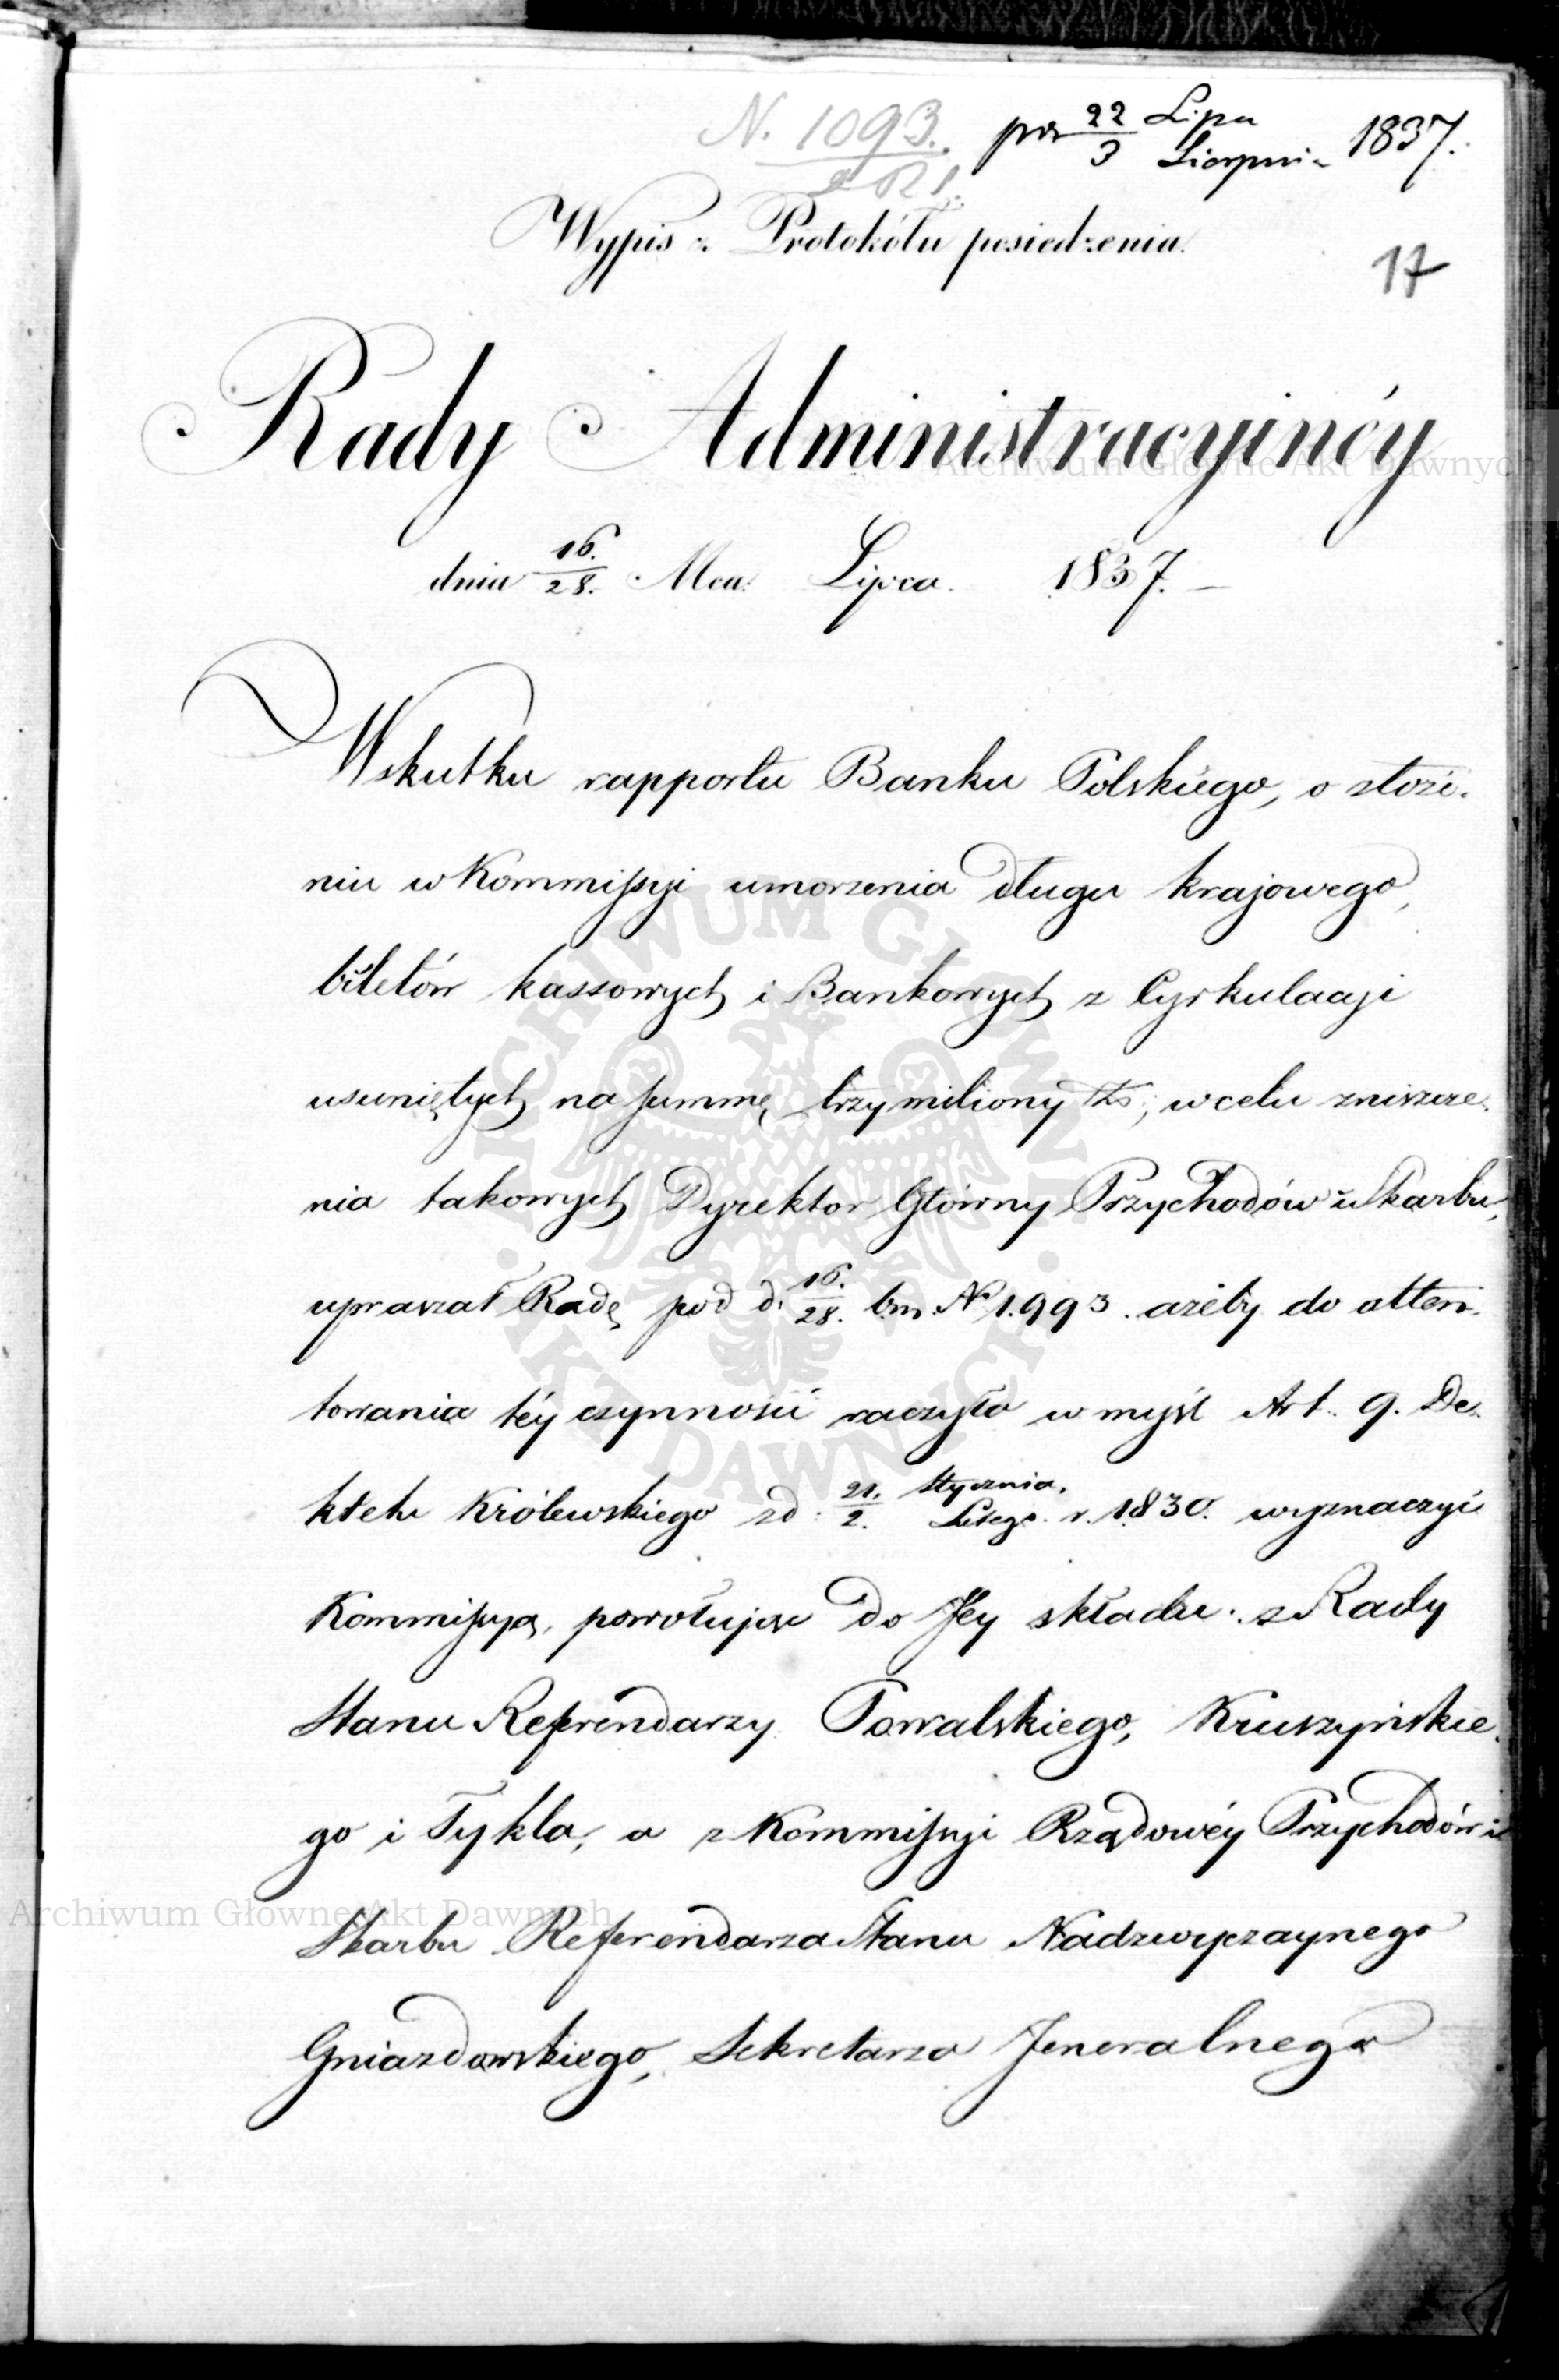 N. 1093. pr 22/3 Lipca/Sierpnia 1837.
Wypis z Protokółu posiedzenia
17
Rady Administracyinéy
dnia 16./28. Mca: Lipca. 1837. —
Wskutku rapportu Banku Polskiego, o złoże-
niu w Kommissyi umorzenia długu krajowego,
biletów kassowych i Bankowych z Cyrkulacyi
usuniętych na summę trzy miliony Złp; w celu zniszcze-
nia takowych Dyrektor Główny Przychodów i Skarbu,
upraszał Radę pod d: 16./28. b.m. No 1.993. ażeby do atten-
towania téy czynności raczyła w myśl Art. 9. De-
kretu Królewskiego z d: 21./2. Stycznia./Lutego. r. 1830. wyznaczyć
Kommissyą, powołując do Jey składu: z Rady
Stanu Referendarzy Powalskiego, Kruszyńskie-
go i Tykla, a z Kommissyi Rządowéy Przychodów i
Skarbu Referendarza Stanu Nadzwyczaynego
Gniazdowskiego, Sekretarza Jeneralnego
Archiwum Główne Akt Dawnych
ARCHIWUM GŁÓWNE AKT DAWNYCH
Archiwum Główne Akt Dawnych